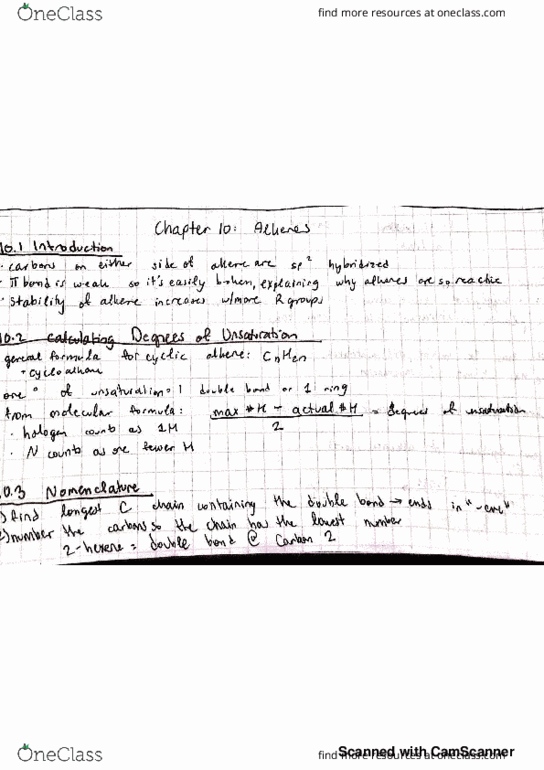 OneClass
find more resources at oneclass.com
Chapter 10: Alkenes
10.1 Introduction
· carbons on either side of alkene are sp² hybridized
· π bond is weak so it's easily broken, explaining why alkenes are so reactive
· stability of alkene increases w/more R groups
0.2 Calculating Degrees of Unsaturation
general formula for cyclic alkene: CnH2n
+ cycloalkane
one ° of unsaturation = 1 double bond or 1 ring
from molecular formula: max #H - actual #H / 2 = degrees of unsaturation
· halogen counts as 1H
· N counts as one fewer H
0.3 Nomenclature
) find longest C chain containing the double bond → ends in "-ene"
2) number the carbons so the chain has the lowest number
2-hexene = double bond @ Carbon 2
OneClass
find more resources at oneclass.com
Scanned with CamScanner